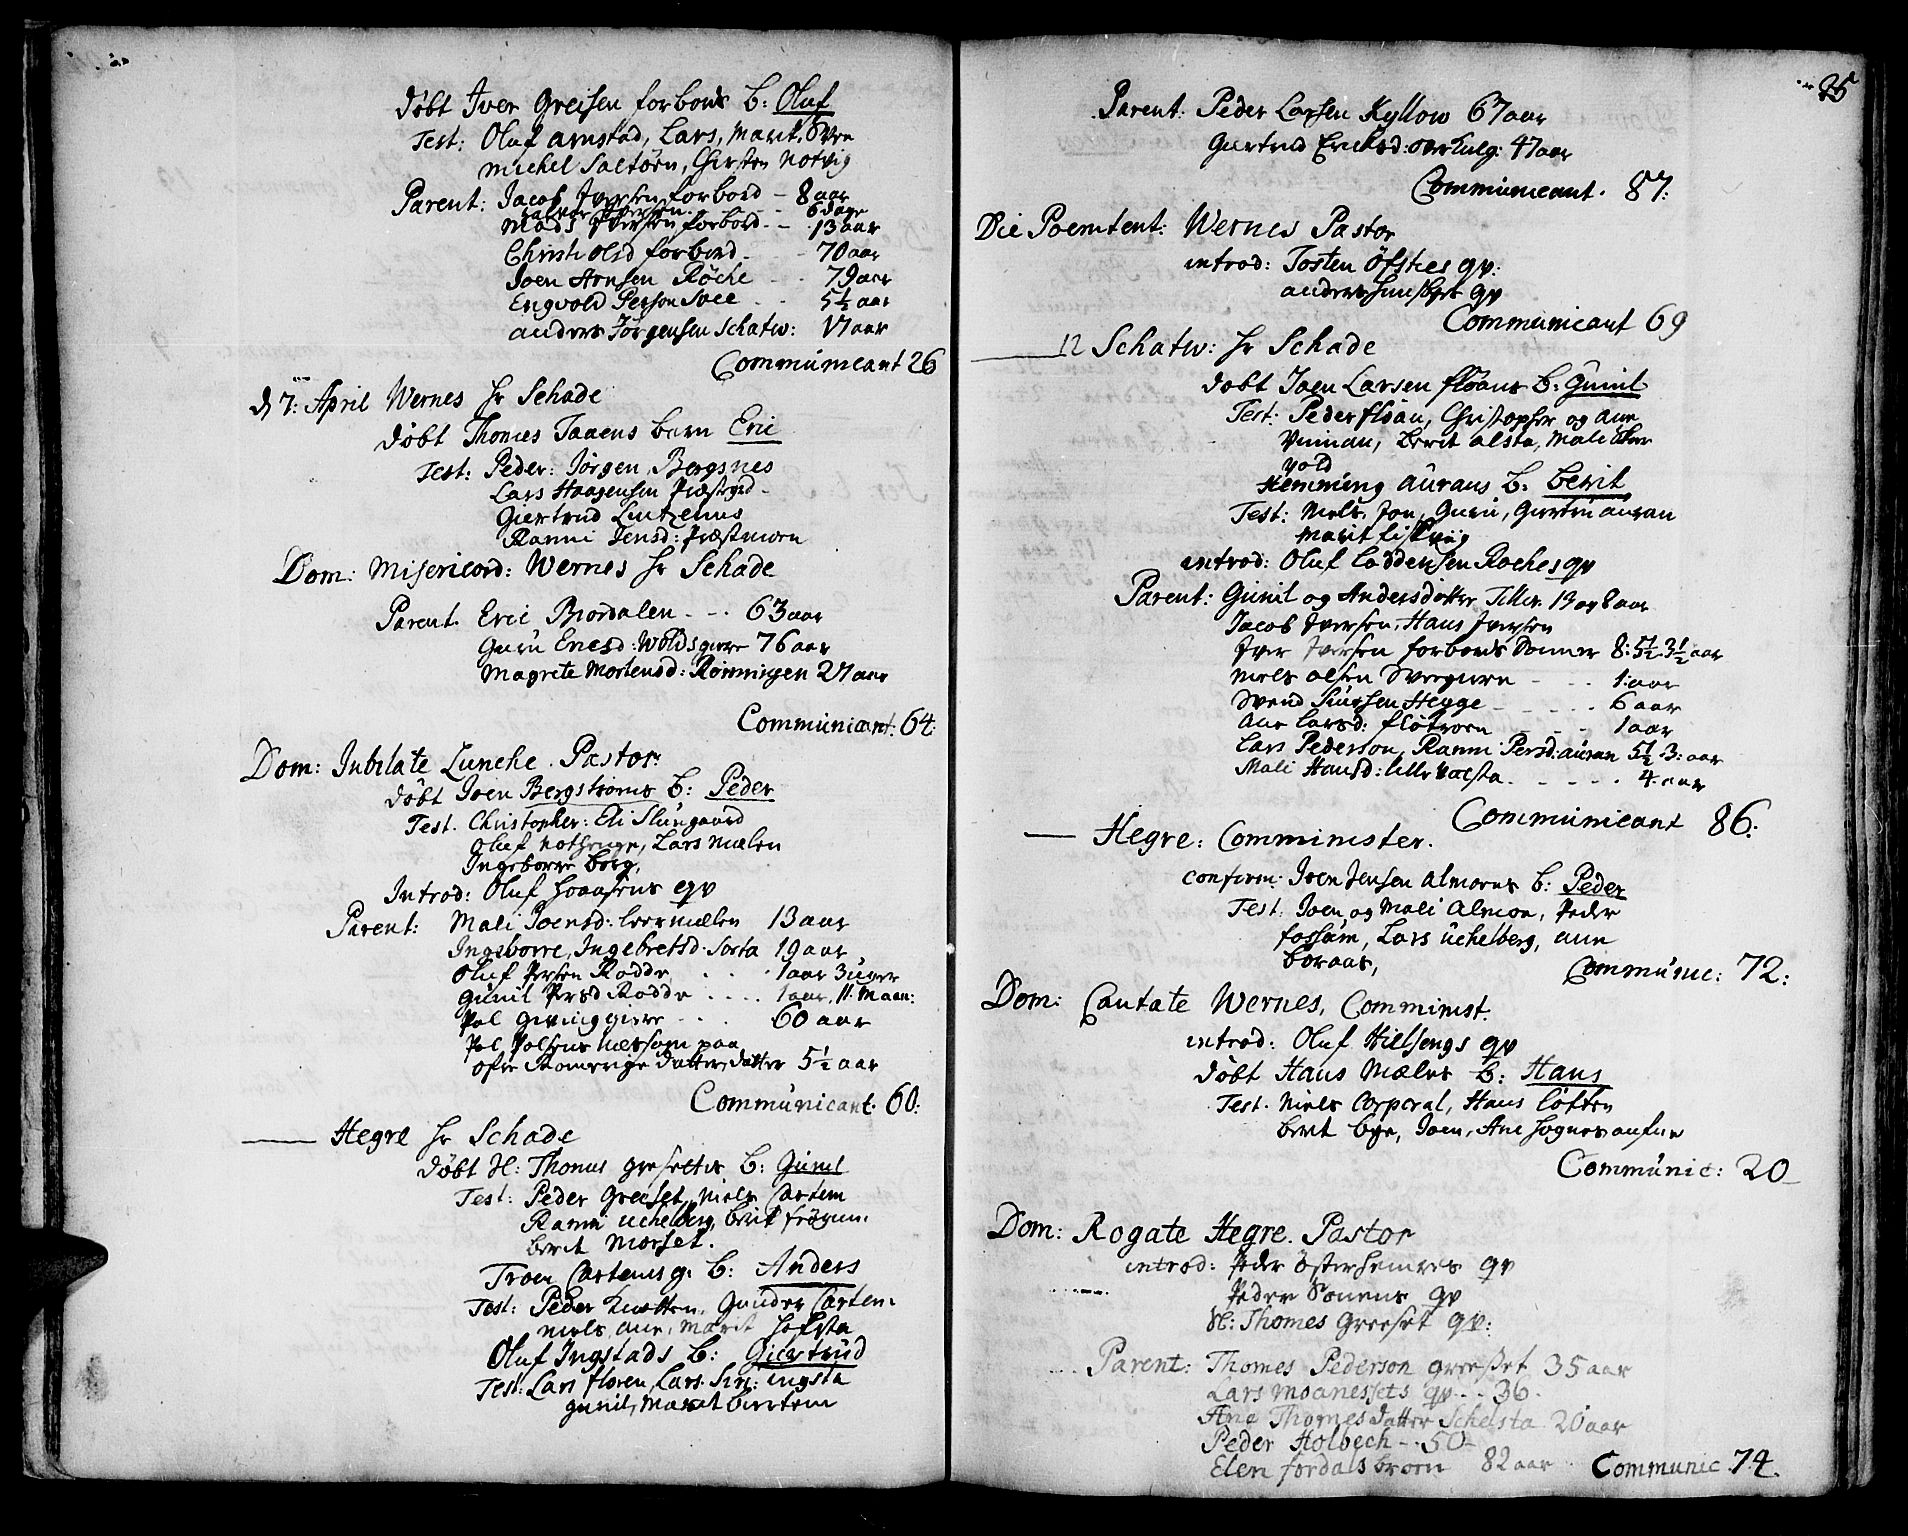 døbt Iver Greisen forbords b: Oluf
Test: Oluf arnstad, Lars, Marit, Sven
Michel Saltøen, Chirsten Notvig
Parent: Jacob Iversen forbord - 8 aar
Iversen - 6 dage
Mads Iversen forbord - 13 aar
Christi Olsd forbord - 70 aar
Joen Arnsen Røche - 79 aar
Engvold Person Svee - 5½ aar
anders Jørgensen Schatv: 17 aar
Communicant 26
d 7: April Wernes hr Schade
døbt Thomes Taaens barn Eric
Test: Peder: Jørgen, Bergsnes
Lars Haagensen Præstegrd
Giertrud Lutzenus
Ranni Jensd: Præstmoen
Dom: Misericord: Wernes hr Schade
Parent. Eric Biordalen - - 63 aar
Guru Ericsd: Woldsgiere 76 aar
Magrete Mortensd: Rønningen 27 aar
Communicant. 64.
Dom: Jubilate Luncke. Pastor.
døbt Joen Bergstrøms b: Peder
Test. Christopher: Eli Slungaard
Oluf hotheuge, Lars Mælen
Ingeborre borg,
Introd: Oluf hoaasens qv
Parent: Mali Joensd: leermælen 13 aar
Ingeborre, Ingebretsd. Sorta 19 aar
Oluf Persen Rodde . . . 1 aar 3 uger
Gunil Persd Rodde . . . . 1 aar, 11. Maan:
Pol Gevinggiere - - . 60 aar
Pol Polsens huessom paa
øfre Komerige datterdatter 5½ aar
Communicant. 60:
Hegre hr Schade
døbt Sl: Thomes greesetes b: Gunil
Test: Peder Greeset, Niels Cartem
Ranni uchelberg, berit frøgun.
berit Morset.
Troen Cartemsg. b: Anders
Test: Peder Knotten, Gunder Carten.
Niels, ane, Marit hofsta
Oluf Ingstads b: Giertrud
Test: Lars floren, Lars. Siri: ingsta
gunil, Marit biertem
25
Parent: Peder Larsen Kyllow 67 aar
Giertrud Ericksd: overkulg: 47 aar
Communicant. 87:
Die Poenitent: Wernes Pastor
introd: Tosten Øfsties qv:
anders qv
Communicant 69
12 Schatv: hr Schade
døbt Joen Larsen fløans b: Gunil
Test: Peder fløan, Christopher og ane
Vinnan, Berit alsta, Mali
vold
Hemming aurans b: berit
Test: Niels, Jon, Guru, Giertru auran
Marit fiskviig
introd: Oluf Loddensen Roches qv
Parent: Gunil og Andersdotter Tiller 13 og 8 aar
Jacob Iversen, Hans Iversen
Iver Iversen forbords Sønner 8: 5½. 3½ aar
Niels olsen Sveegiern - - . . 1: aar
Svend Siursen Hegge - - - . . 6 aar
Ane Larsd: fløtroen - - 1 aar
Lars Pederson, Ranni Persd: auran 5½ 3: aar
Mali Hansd: lille valsta. - - - - . 4. aar
Communicant 86:
Hegre: Comminister.
confirm: Joen Jensen Almoens b: Peder
Test: Joen og Mali Almoe, Peder
fossum, Lars uchelberg, ane
boraas,
Communic: 72:
Dom: Cantate Wernes, Comminist.
introd: Oluf Hielsengs qv
døbt Hans Mæles b: Hans
Test. Niels Corporal, Hans løften
berit bye, Joen, Ane
Communic: 20
Dom: Rogate Hegre. Pastor
introd: Peder Østerhemres qv
Peder Sonens qv
Sl: Thomes Greeset qv:
Parent: Thomes Pederson greeset 35 aar
Lars Moanessets qv - . 36.
Ane Thomesdatter Schelsta 20 aar
Peder Holbech - . 50
Elen fordals broen 82 aar
Communic. 74.